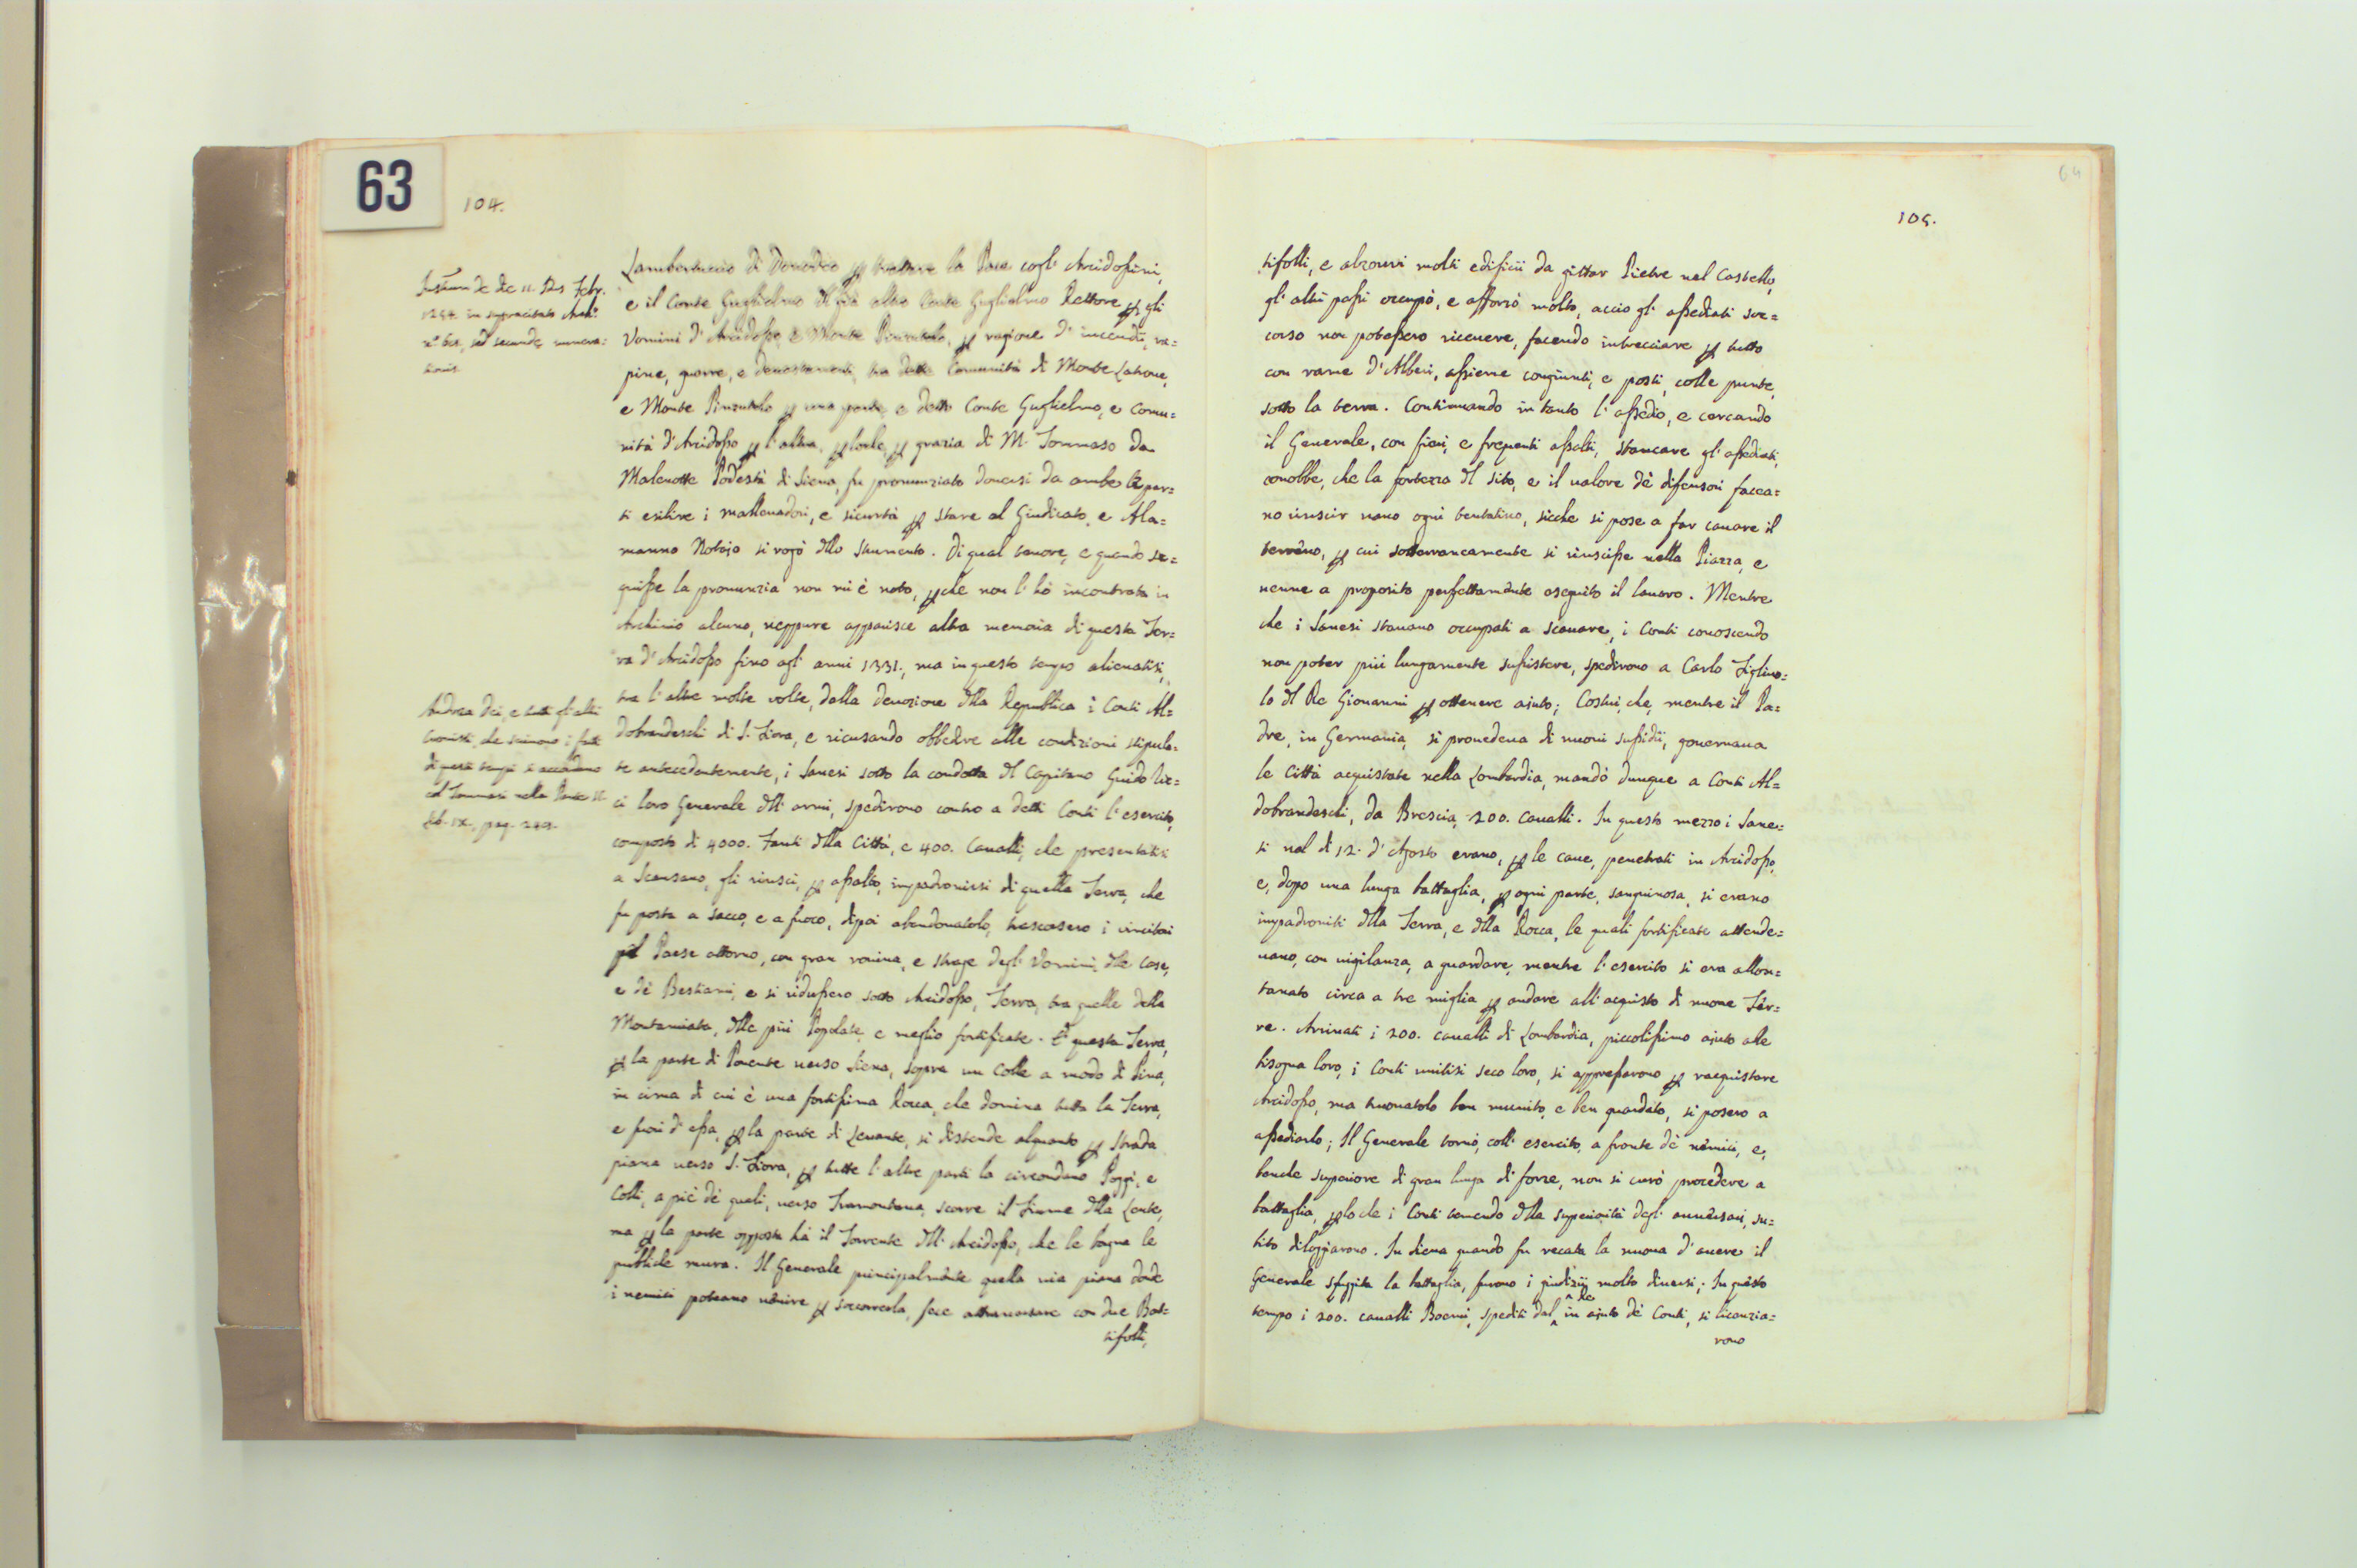 63
104.
Lambertuccio di Donodeo per trattare la Pace cogl' Arcidossini,
e il Conte Guglielmo del già altro Conte Guglielmo Rettore per gli
Uomini d' Arcidosso, e Monte Pinzutolo, per ragione d' incendii, ra=
pine, guerre, e devastamenti, tra dette Comunità di Monte Latrone,
e Monte Pinzutolo per una parte, e detto Conte Guglielmo, e Comu=
nità d' Arcidosso per l' altra, per lo che, per grazia di M. Tommaso da
Podestà di Siena, fu pronunziato doversi da ambe le par=
ti esibire i mallevadori, e sicurtà per stare al Giudicato, e Ala=
manno Notajo si rogò dello Strumento. Di qual tenore, e quando se=
guisse la pronunzia non mi è noto, perche non l' hò incontrata in
Archivio alcuno, neppure apparisce altra memoria di questa Ter=
ra d' Arcidosso fino agl' anni 1331., ma in questo tempo alienatisi,
tra l' altre molte volte, dalla devozione della Republica i Conti Al=
dobrandeschi di S. Fiora, e ricusando obbedire alle condizioni stipula=
te antecedentemente, i Sanesi sotto la condotta del Capitano Guido Ric=
ci loro Generale dell' armi, spedirono contro a detti Conti l' esercito,
composto di 4000. Fanti della Città, e 400. Cavalli, che presentatisi
a Scansano, gli riuscì, per assalto, impadronirsi di quella Terra, che
fu posta a sacco, e a fuoco, dipoi abandonatolo, trascorsero i vincitori
pel Paese attorno, con gran rovina, e strage degl' Uomini, delle Case,
e dè Bestiami, e si ridussero sotto Arcidosso, Terra, tra quelle della
Montamiata, delle più Popolate, e meglio fortificate. E' questa Terra,
per la parte di Ponente verso Siena, sopra un Colle a modo di Pina,
in cima di cui è una fortissima Rocca, che domina tutta la Terra,
e fuori d' essa, per la parte di Levante, si distende alquanto per strada
piana verso S. Fiora, per tutte l' altre parti la circondano Poggi, e
Colli, a piè dè quali, verso Tramontana, scorre il Fiume della Lente,
ma per la parte opposta hà il Torrente dell' Arcidosso, che le bagna le
publiche mura. Il Generale principalmente quella via piana donde
i nemici poteano venire per soccorrerla, fece attraversare con due Bat=
tifolli,
Andrea Dei, e tutti gl' altri
Cronisti, che scrivono i fatti
di questi tempi si accordano
col Tommasi nella Parte II.
Lib. IX., pag.
105.
64
tifolli, e alzouvi molti edificii da gittar Pietre nel Castello,
gl' altri passi occupò, e afforzò molto, accio gl' assediati soc=
corso non potessero ricevere, facendo intrecciare per tutto
con rame d' Alberi, assieme congiunti, e posti, colle punte,
sotto la terra. Continuando in tanto l' assedio, e cercando
il Generale, con fieri, e frequenti assalti, stancare gl' assediati,
conobbe, che la fortezza del sito, e il valore dè difensori facea=
no riuscir vano ogni tentativo, sicche si pose a far cavare il
terreno, per cui sotterraneamente si riuscisse nella Piazza, e
venne a proposito perfettamente eseguito il lavoro. Mentre
che i Sanesi stavano occupati a scavare, i Conti conoscendo
non poter più lungamente sussistere, spedirono a Carlo Figlivo=
lo del Re Giovanni per ottenere ajuto; Costui, che, mentre il Pa=
dre, in Germania, si provedeva di nuovi sussidii, governava
le Città acquistate nella Lombardia, mandò dunque a Conti Al=
dobrandeschi, da Brescia, 200. Cavalli. In questo mezzo i Sane=
si nel dì 12. d' Agosto erano, per le cave, penetrati in Arcidosso,
e, dopo una lunga battaglia, per ogni parte, sanguinosa, si erano
impadroniti della Terra, e della Rocca, le quali fortificate attende=
vano, con vigilanza, a guardare, mentre l' esercito si era allon=
tanato circa a tre miglia per andare all' acquisto di nuove Ter=
re. Arrivati i 200. cavalli di Lombardia, piccolissimo ajuto alle
bisogna loro, i Conti unitisi seco loro, si appressarono per racquistare
Arcidosso, ma truovatolo ben munito, e ben guardato, si posero a
assediarlo; Il Generale tornò, coll' esercito, a fronte dè nemici, e,
benche superiore di gran lunga di forze, non si curò procedere a
battaglia, per lo che i Conti temendo della superiorità degl' avversari, su=
bito diloggiarono. In Siena quando fu recata la nuova d' avere il
Generale sfuggita la battaglia, furono i giudizii molto diversi; In questo
tempo i 200. cavalli Boemi, spediti dal Re in ajuto dè Conti, si licenzia=
rono